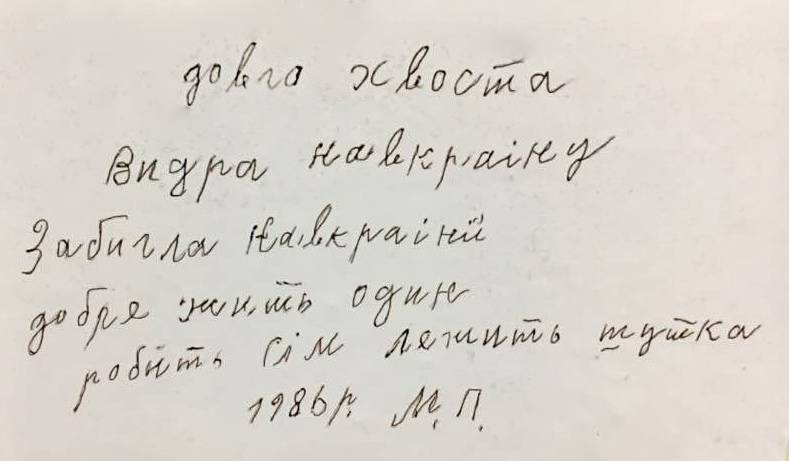 довго хвоста
Видра навкраіну
Забигла навкраїні
добря жить один
робить сім лежить шутка
1986 р. М. П.